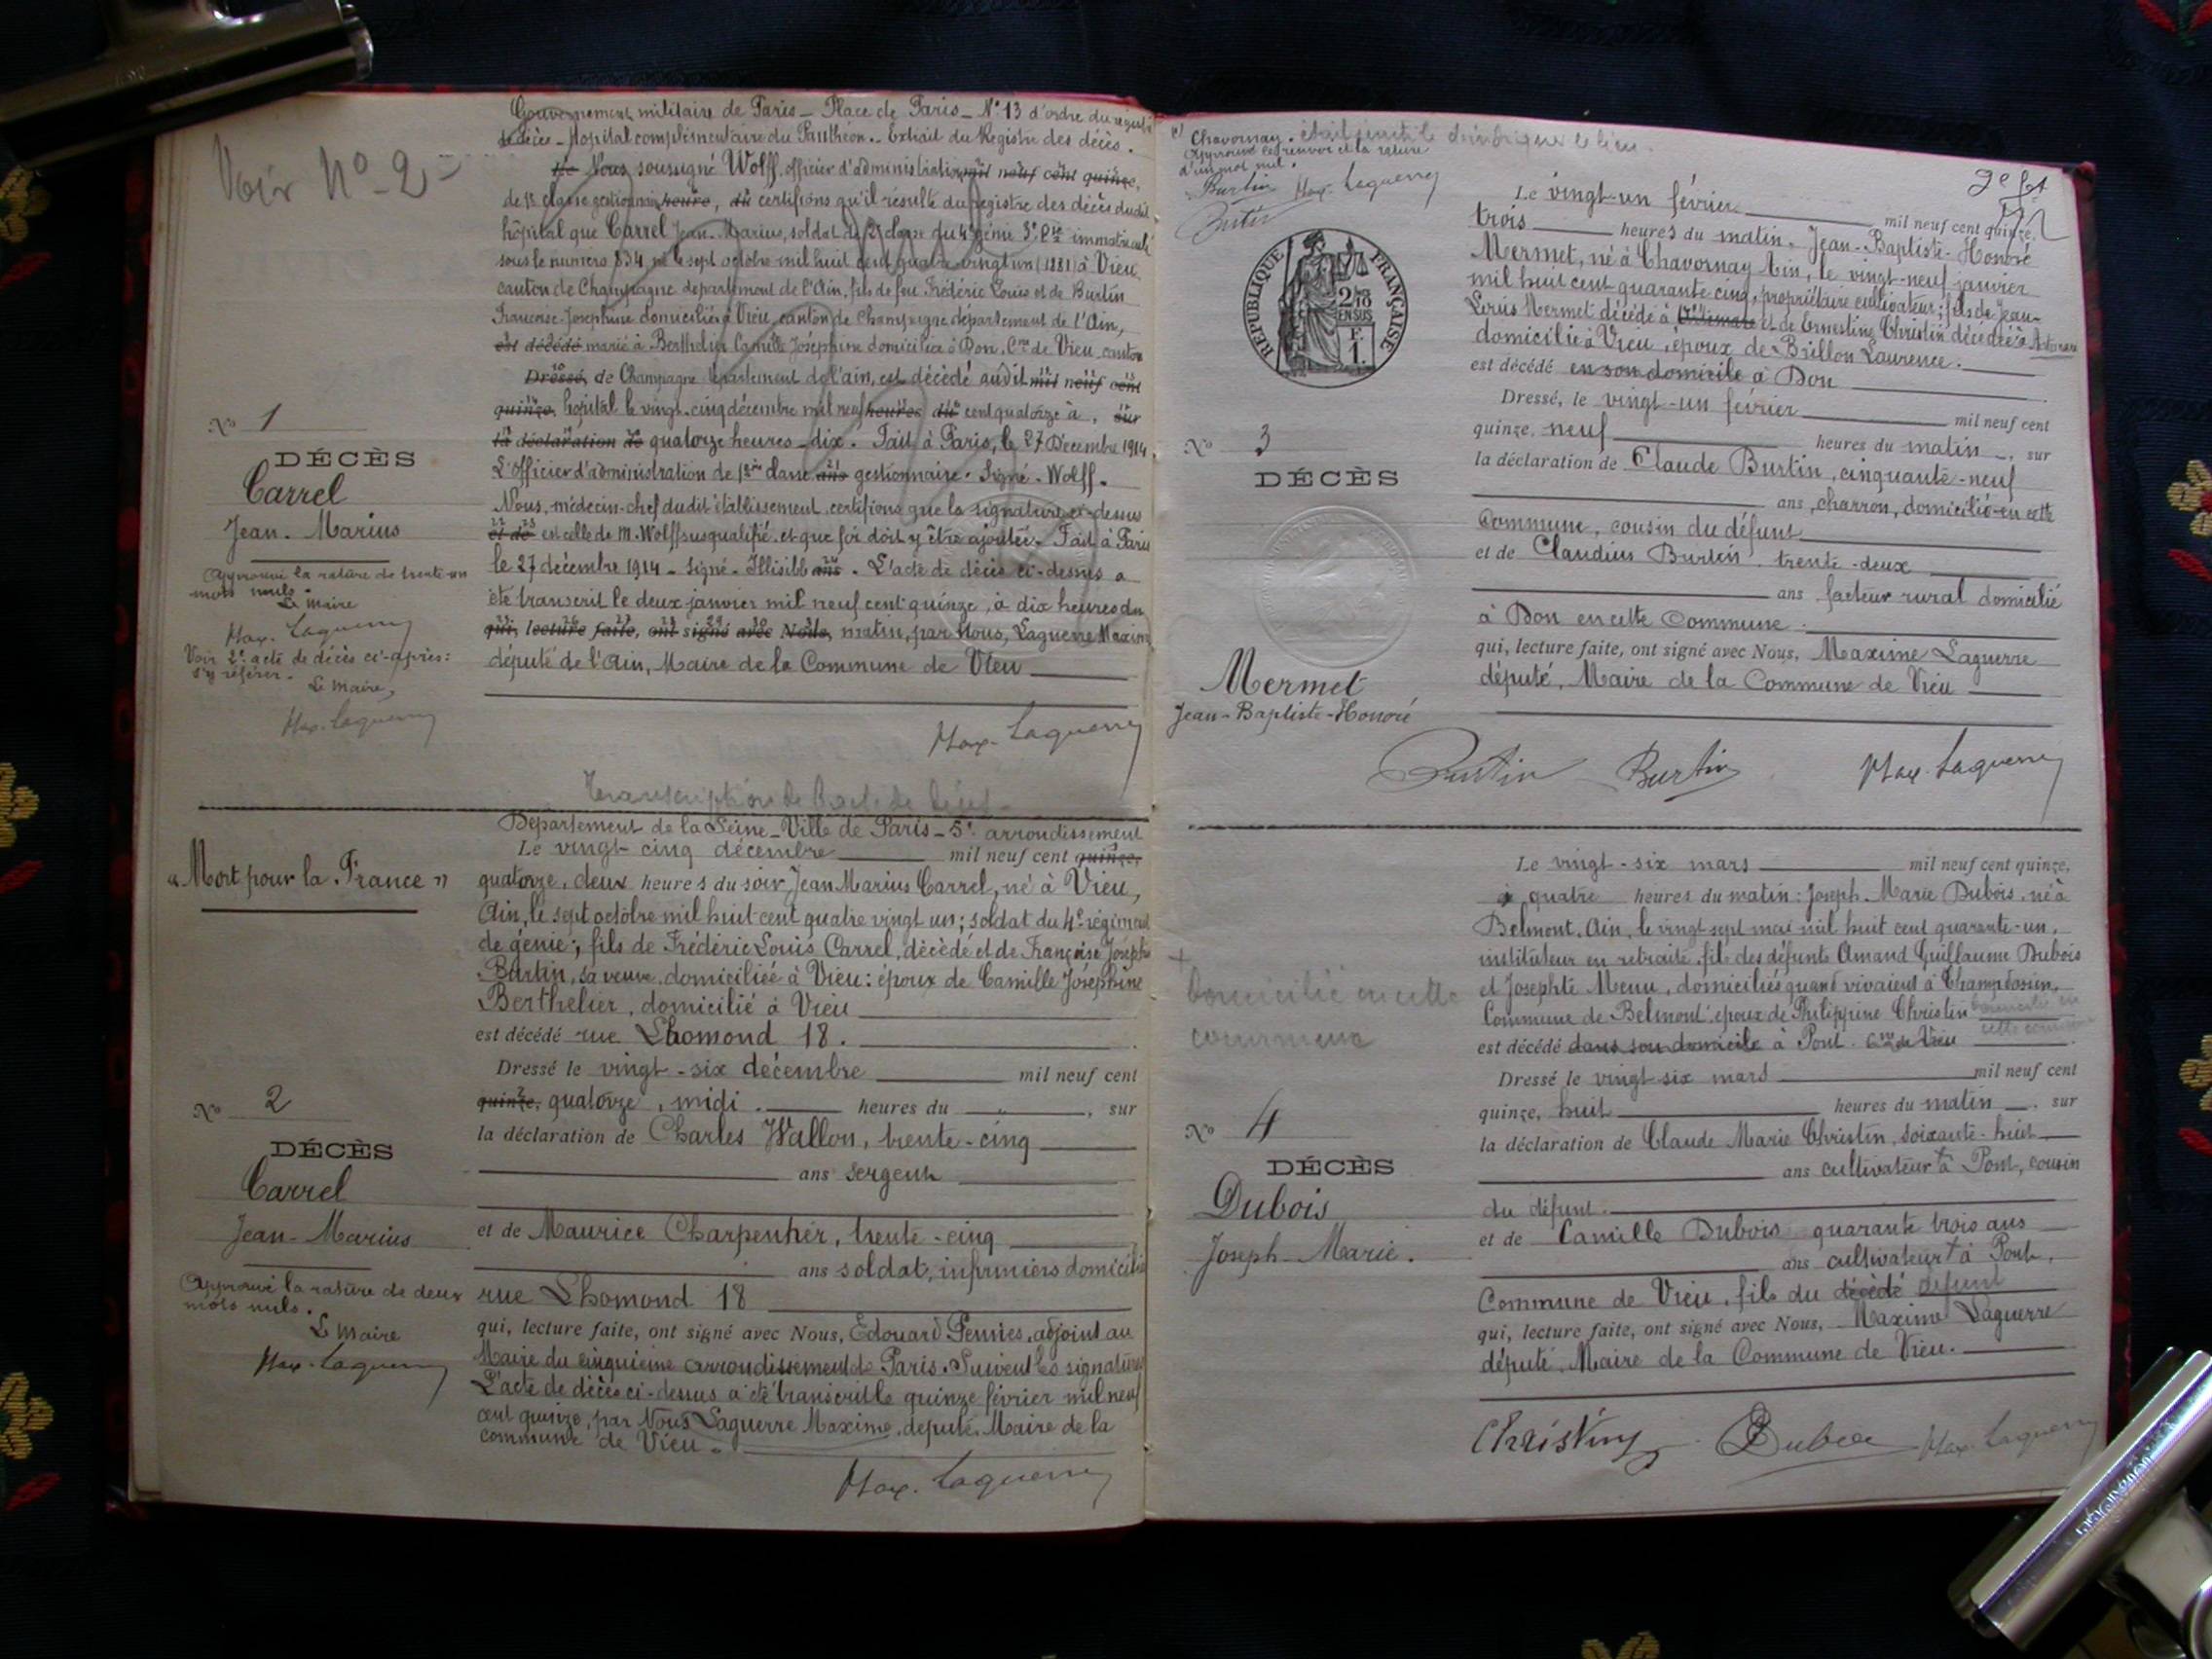 Voir N° 2
Gouvernement militaire de Paris _ Place de Paris _ N° 13 d'ordre du
de décès _ Hôpital complémentaire du Panthéon. _ Extrait du Registre des décès.
Le Nous soussigné Wolff, officier d'administration mil neuf cent quinze,
de 1re classe gestionnaire heure, du certifions qu'il résulte du registre des décès dudit
hôpital que Carrel Jean-Marius, soldat de 2e classe du 4e génie 3e Cie immatriculé
sous le numéro 834 né le sept octobre mil huit cent quatre-vingt un (1881) à Vieu
canton de Champagne département de l'Ain, fils de feu Frédéric Louis et de Burtin
Françoise-Josephine domiciliés à Vieu, canton de Champagne département de l'Ain,
est décédé marié à Berthelier Camille Joséphine domiciliée à Don, Cne de Vieu canton
Dressé, de Champagne département de l'ain, est décédé audit mil neuf cent
quinze, hôpital le vingt-cinq décembre mil neuf heures du cent quatorze à, sur
la déclaration de quatorze heures _ dix. Fait à Paris, le 27 Décembre 1914.
L'Officier d'administration de 1ère classe ans gestionnaire. Signé. Wolff.
Nous, médecin-chef dudit établissement, certifions que la signature ci-dessus
et de est celle de M. Wolff susqualifié et que foi doit y être ajoutée. Fait à Paris
le 27 décembre 1914 _ Signé _ Illisible ans. L'acte de décès ci-dessus a
été transcrit le deux janvier mil neuf cent quinze, à dix heures du
qui, lecture faite, ont signé avec Nous, matin, par Nous, Laguerre Maxime
député de l'Ain, Maire de la Commune de Vieu
Max. Laguerre
N° 1
DÉCÈS
Carrel
Jean-Marius
Approuvé la rature de trente-un
mots nuls.
Le maire
Max. Laguerre
Voir 2e acte de décès ci-après:
s'y référer.
Le maire,
Max. Laguerre
Transcription de l'acte de décès
« Mort pour la France »
Département de la Seine _ Ville de Paris _ 5e arrondissement
Le vingt-cinq décembre mil neuf cent quinze,
quatorze, deux heures du soir, Jean Marius Carrel, né à Vieu,
Ain, le sept octobre mil huit cent quatre vingt un; soldat du 4e régiment
de génie; fils de Frédéric Louis Carrel, décédé et de Françoise Joséphe
Burtin, sa veuve, domiciliée à Vieu: époux de Camille Joséphine
Berthelier, domicilié à Vieu
est décédé rue Lhomond 18.
Dressé le vingt-six décembre mil neuf cent
quinze, quatorze, midi. heures du " , sur
la déclaration de Charles Wallon, trente-cinq
ans sergent
et de Maurice Charpentier, trente-cinq
ans soldat, infirmiers domiciliés
rue Lhomond 18
qui, lecture faite, ont signé avec Nous, Edouard adjoint au
Maire du cinquième arrondissement de Paris. Suivent les signatures
L'acte de décès ci-dessus a été transcrit le quinze février mil neuf
cent quinze, par Nous Laguerre Maxime, député, Maire de la
commune de Vieu.
Max. Laguerre
N° 2
DÉCÈS
Carrel
Jean-Marius
Approuvé la rature de deux
mots nuls.
Le Maire
Max. Laguerre
Chavornay.
Approuvé le renvoi et la rature
d'un mot nul.
Burtin Max. Laguerre
Burtin
RÉPUBLIQUE FRANÇAISE
2/10
EN SUS
F.
1.
Le vingt-un février mil neuf cent quinze,
trois heures du matin. Jean-Baptiste-Honoré
Mermet, né à Chavornay Ain, le vingt-neuf janvier
mil huit cent quarante cinq, propriétaire cultivateur; fils de Jean-
Louis Mermet décédé à et de Ernestine Christin décédée à
domicilié à Vieu, époux de Brillon Laurence.
est décédé en son domicile à Don
Dressé, le vingt-un février mil neuf cent
quinze, neuf heures du matin, sur
la déclaration de Claude Burtin, cinquante-neuf
ans, charron, domicilié en cette
Commune, cousin du défunt
et de Claudius Burtin, trente-deux
ans facteur rural domicilié
à Don en cette Commune.
qui, lecture faite, ont signé avec Nous, Maxime Laguerre
député, Maire de la Commune de Vieu
Burtin Burtin Max. Laguerre
N° 3
DÉCÈS
Mermet
Jean-Baptiste-Honoré
Le vingt-six mars mil neuf cent quinze,
à quatre heures du matin: Joseph-Marie Dubois, né à
Belmont, Ain, le vingt sept mai mil huit cent quarante-un,
instituteur en retraite, fils des défunts Amand Guillaume Dubois
et Josephte Menu, domiciliés quand vivaient à Champdossin,
Commune de Belmont, époux de Philippine Christin domicilié en
cette commune
est décédé dans son domicile à Pont. Cne de Vieu
Dressé le vingt-six mars mil neuf cent
quinze, huit heures du matin, sur
la déclaration de Claude Marie Christin, soixante-huit
ans cultivateur + à Pont, cousin
du défunt.
et de Camille Dubois quarante trois ans
ans cultivateur + à Pont,
Commune de Vieu, fils du décédé défunt
qui, lecture faite, ont signé avec Nous, Maxime Laguerre
député, Maire de la Commune de Vieu.
Christin Dubois Max. Laguerre
+
domicilié en cette
commune
N° 4
DÉCÈS
Dubois
Joseph-Marie.